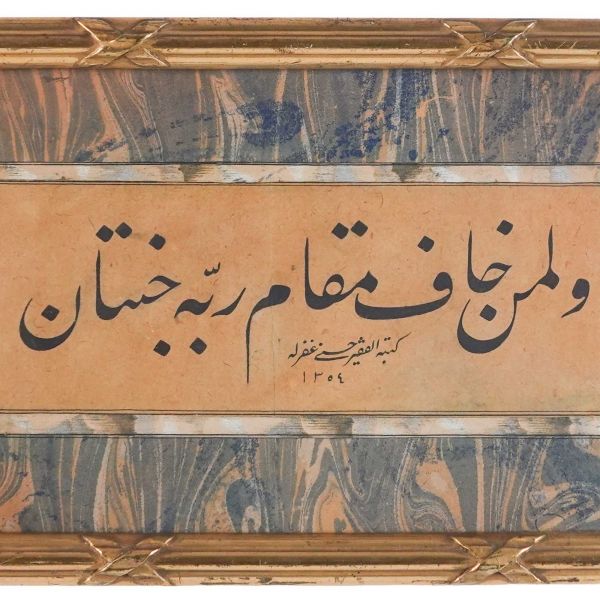 ولمن خاف مقام ربّه جنتان
كتبه الفقير حسني غفرله
١٣٥٤